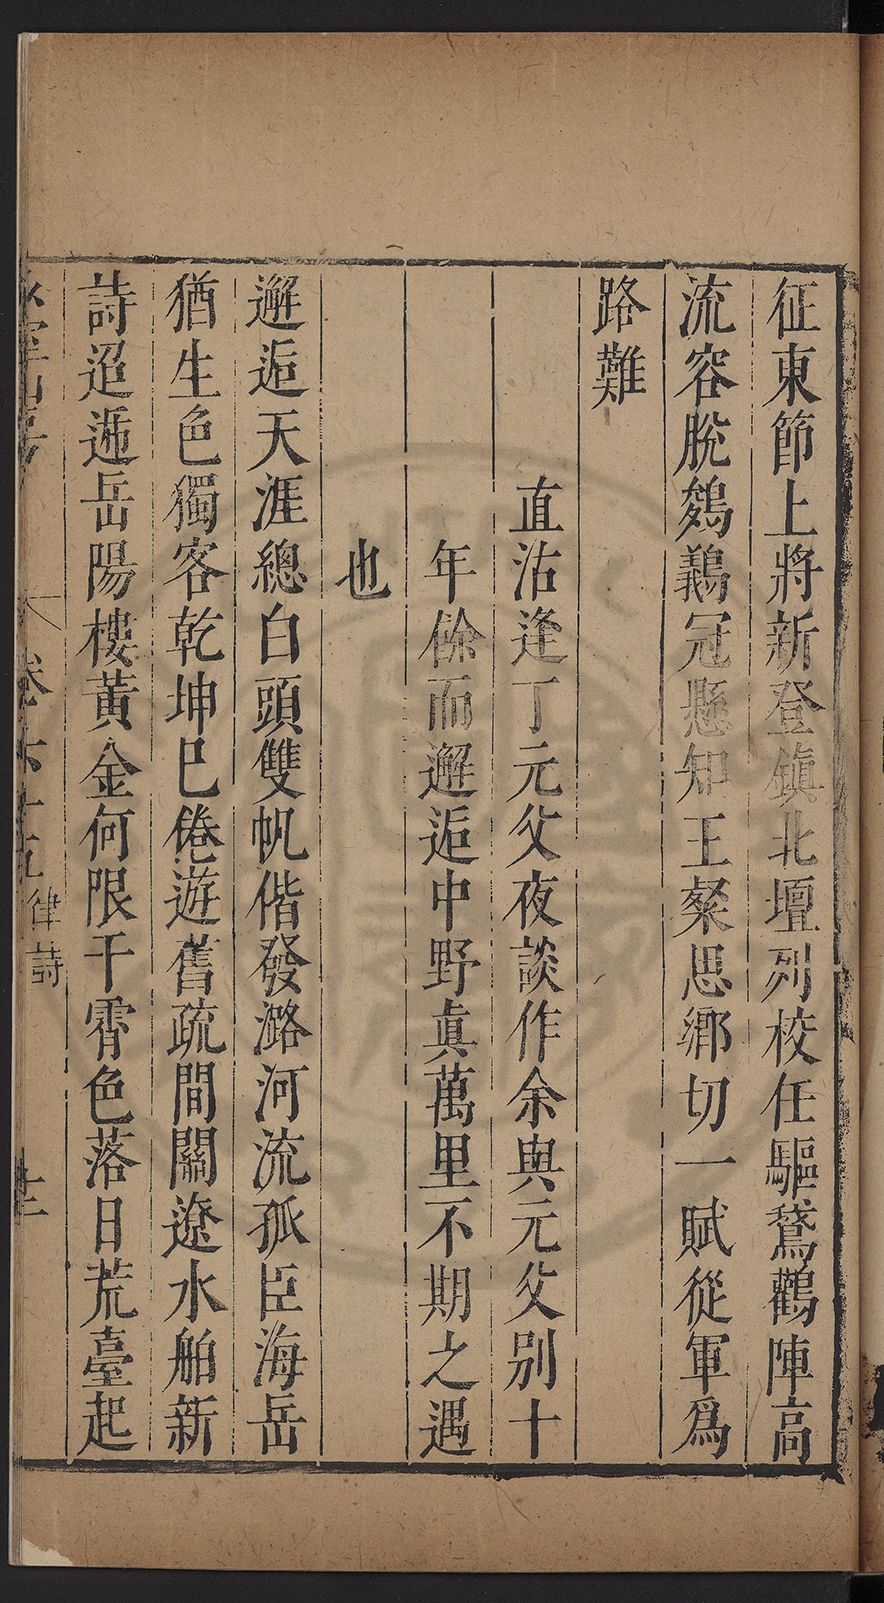 征東節上將新登鎮北壇列校任驅鵞鸛陣高
流容脫鵕鸃冠懸知王粲思鄉切一賦從軍爲
路難
直沽逢丁元父夜談作余與元父別十
年餘而邂逅中野眞萬里不期之遇
也
邂逅天涯總白頭雙帆偕發潞河流孤臣海岳
猶生色獨客乾坤已倦遊舊疏間關遼水舶新
詩迢遞岳陽樓黃金何限干霄色落日荒臺起
卷六十五 律詩